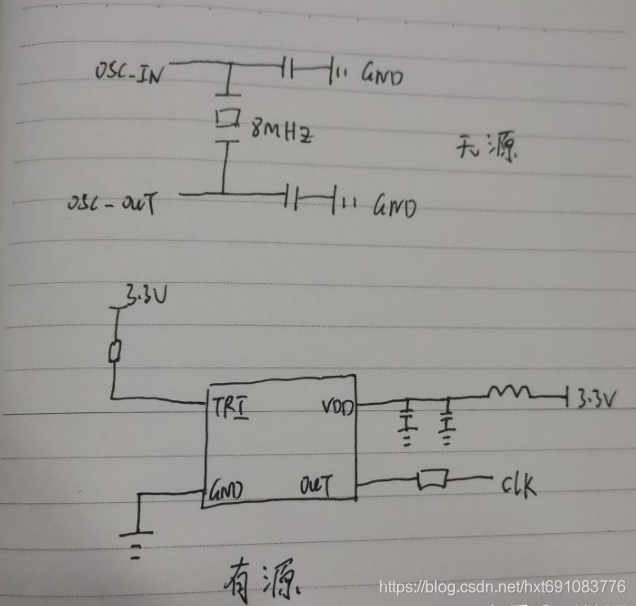 OSC-IN
GND
8MHZ
无源
OSC-OUT
GND
3.3V
TRI
VDD
3.3V
GND
OUT
CLK
有源
https://blog.csdn.net/hxt691083776